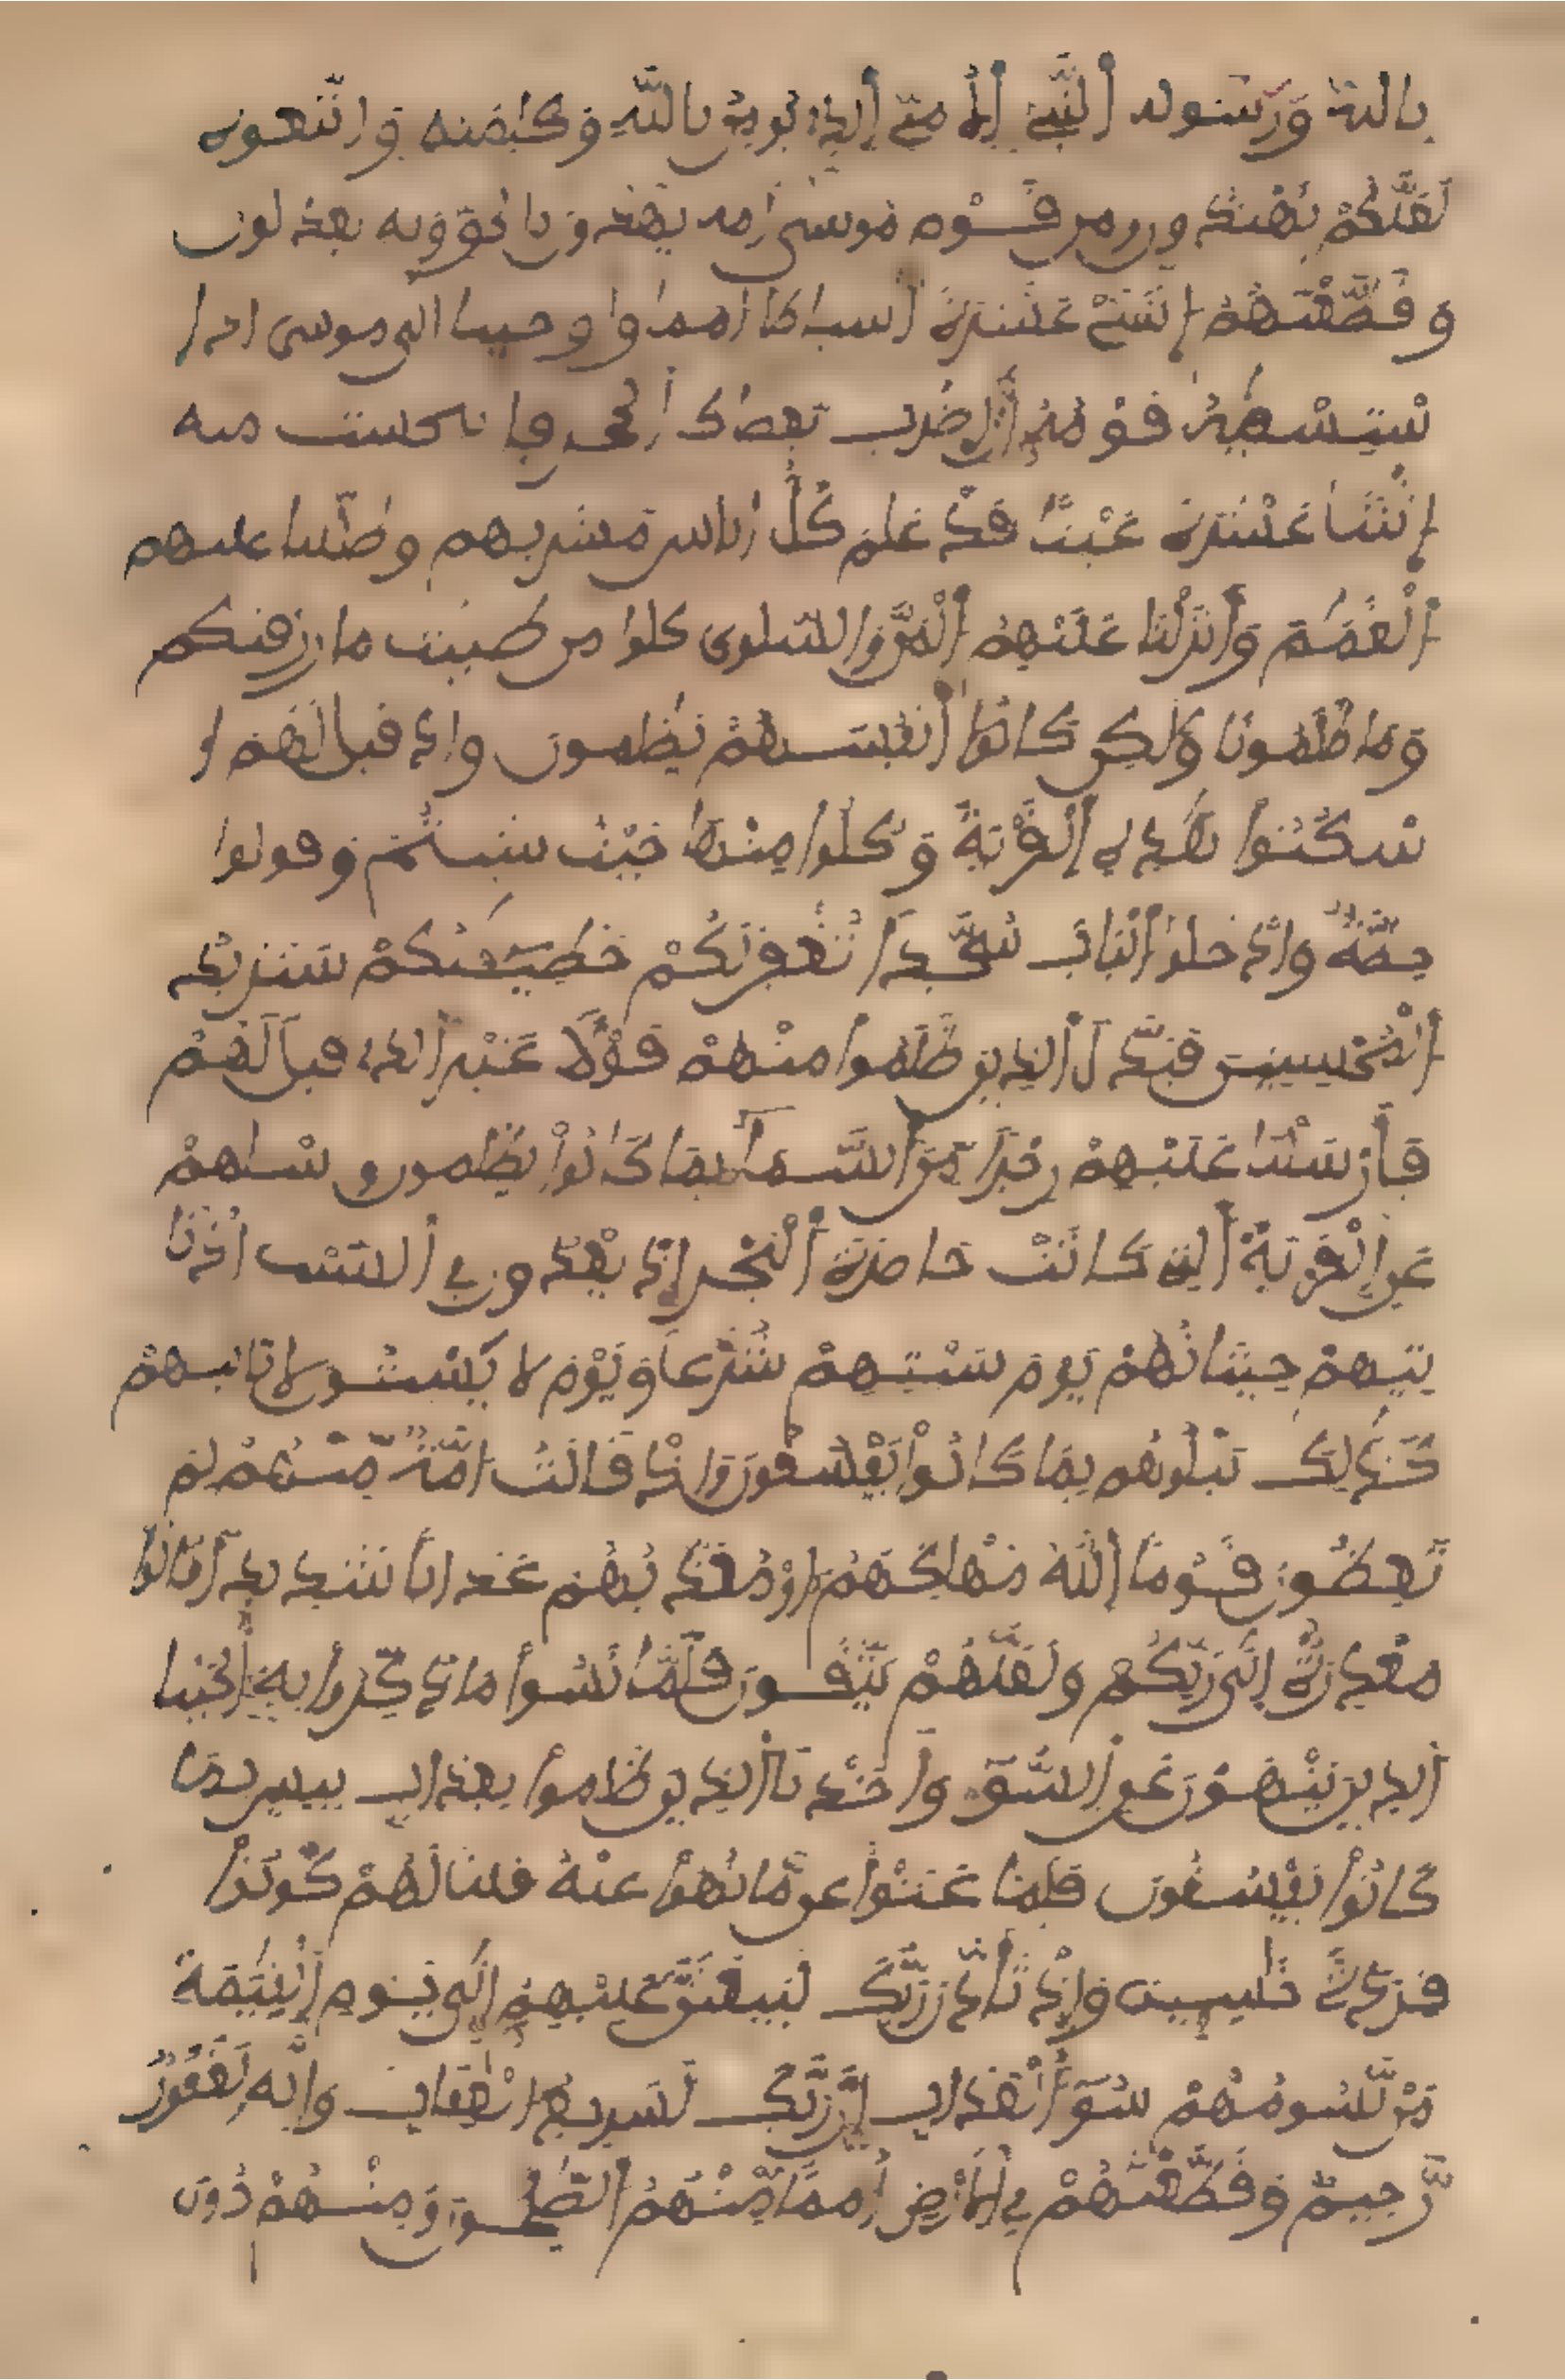 بالله ورسوله النبي الأمي الذي يومن بالله وكلمته واتبعوه
لعلكم تهتدون ومن قوم موسى أمة يهدون بالحق وبه يعدلون
وقطعنهم اثنتي عشرة أسباطا أمما وأوحينا إلى موسى إذ ا
ستسقيه قومه أن اضرب بعصاك الحجر فانبجست منه
اثنتا عشرة عينا قد علم كل أناس مشربهم وظللنا عليهم
الغمم وأنزلنا عليهم المن والسلوى كلوا من طيبت ما رزقنكم
وما ظلمونا ولكن كانوا أنفسهم يظلمون وإذ قيل لهم ا
سكنوا هذه القرية وكلوا منها حيث شيتم وقولوا
حطة وادخلوا الباب سجدا تغفر لكم خطيتكم سنزيد
المحسنين فبدل الذين ظلموا منهم قولا غير الذي قيل لهم
فأرسلنا عليهم رجزا من السماء بما كانوا يظلمون وسلهم
عن القرية التي كانت حاضرة البحر إذ يعدون في السبت إذ تا
تيهم حيتانهم يوم سبتهم شرعا ويوم لا يسبتون لا تاتيهم
كذلك نبلوهم بما كانوا يفسقون وإذ قالت أمة منهم لم
تعظون قوما الله مهلكهم أو معذبهم عذابا شديدا قالوا
معذرة إلى ربكم ولعلهم يتقون فلما نسوا ما ذكروا به أنجينا
الذين ينهون عن السوء وأخذنا الذين ظلموا بعذاب بيس بما
كانوا يفسقون فلما عتوا عن ما نهوا عنه قلنا لهم كونوا
قردة خسين وإذ تأذن ربك ليبعثن عليهم إلى يوم القيمة
من يسومهم سوء العذاب إن ربك لسريع العقاب وإنه لغفور
رحيم وقطعنهم في الأرض أمما منهم الصلحون ومنهم دون